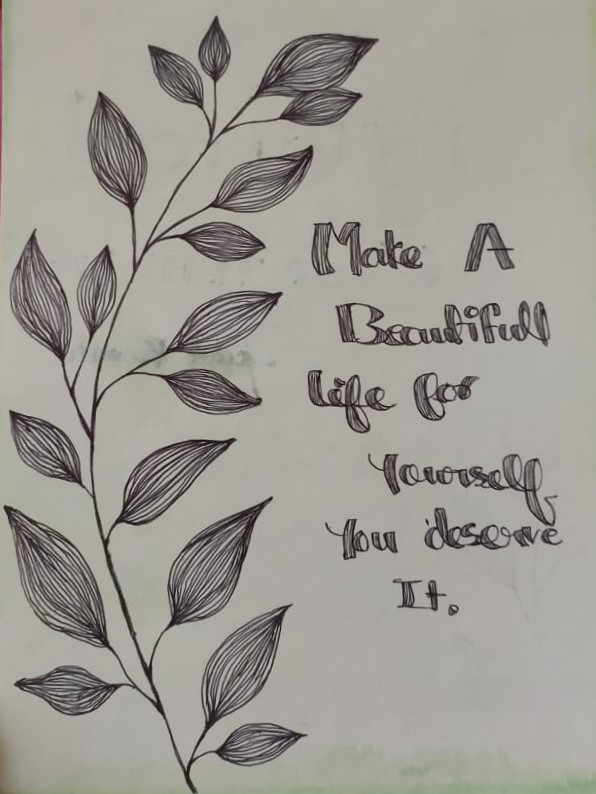 Make A
Beautifull
life for
Yourself,
You deserve
It.